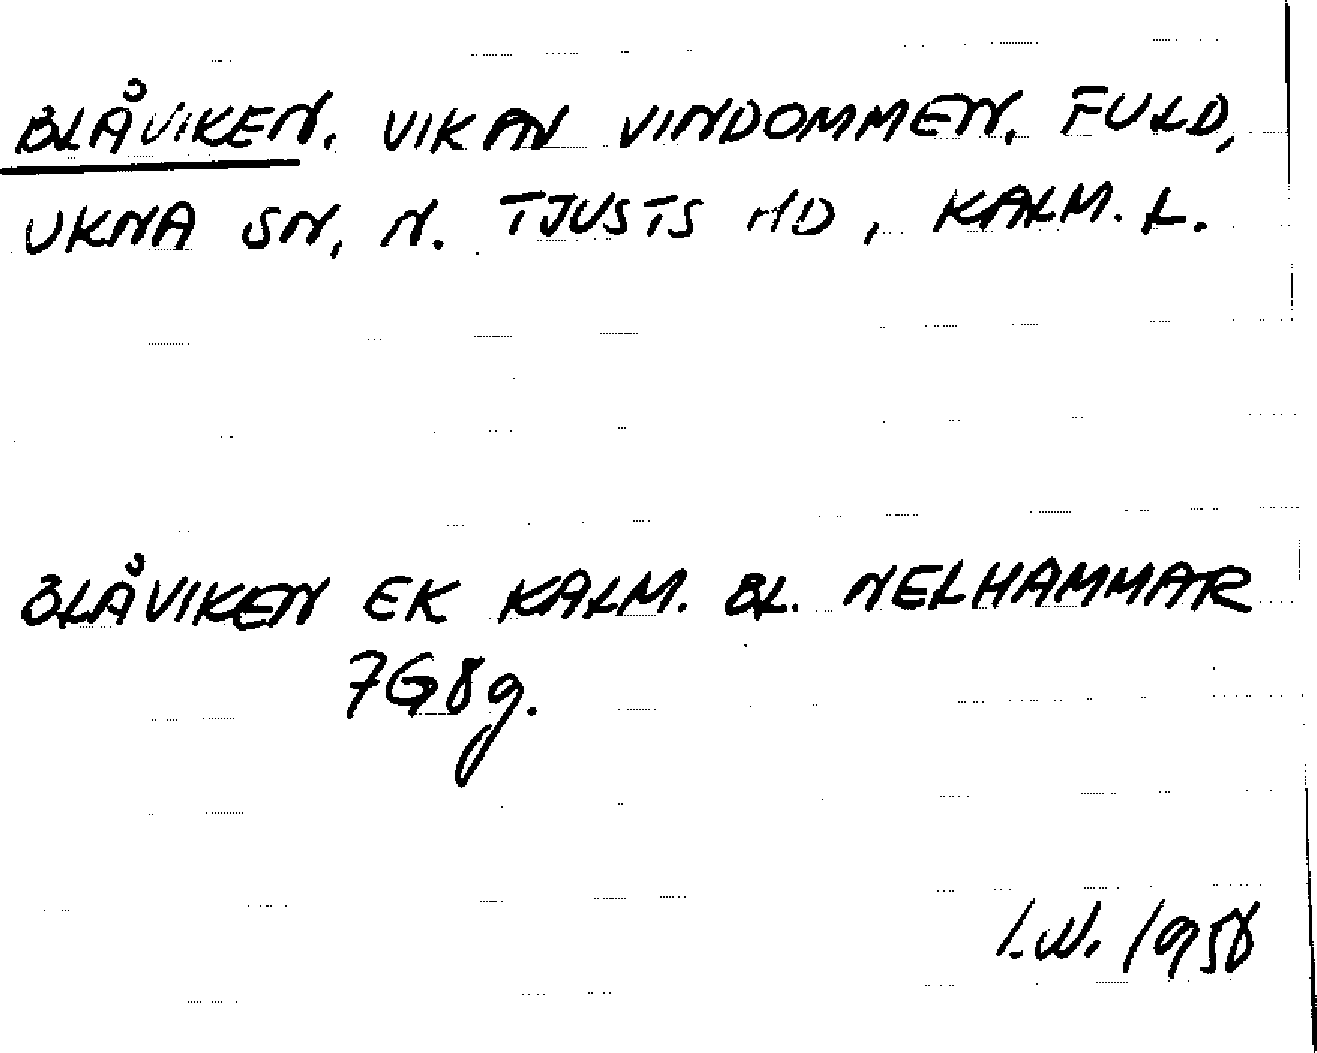 BLÅVIKEN. VIK AV VINDOMMEN. FULD,
UKNA SN, N. TJUSTS HD, KALM. L.
BLÅVIKEN EK KALM. BL. NELHAMMAR
7G8g.
I.W. 1958